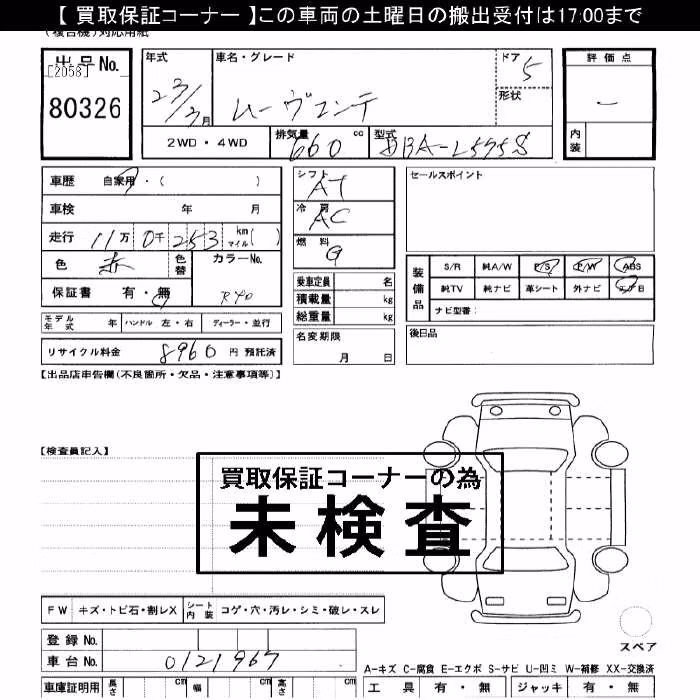 【 買取保証コーナー 】この車両の土曜日の搬出受付は17:00まで
(複合機)対応用紙
出品No.
[2058]
80326
年式
23/3月
車名・グレード
ムーヴコンテ
ドア 5
形状
2WD・4WD
排気量 660 cc
型式 DBA-L575S
評価点
－
内装
車歴 自家用・( )
車検 年 月
走行 11万 0千 253 km マイル( )
色 赤
色替
カラーNo.
R40
保証書 有・無
モデル年式 年
ハンドル 左・右
ディーラー・並行
リサイクル料金 8960 円 預託済
シフト AT
冷房 AC
燃料 G
乗車定員 名
積載量 kg
総重量 kg
名変期限
月 日
セールスポイント
装備品
S/R 純A/W P/S P/W ABS
純TV 純ナビ 革シート 外ナビ エアB
ナビ型番:
後日品
【出品店申告欄(不良箇所・欠品・注意事項等)】
【検査員記入】
買取保証コーナーの為
未検査
FW キズ・トビ石・割レX
シート内装 コゲ・穴・汚レ・シミ・破レ・スレ
登録No.
車台No. 0121967
車庫証明用 長さ cm 幅 cm 高さ cm
スペア
A-キズ C-腐食 E-エクボ S-サビ U-凹ミ W-補修 XX-交換済
工具 有・無 ジャッキ 有・無